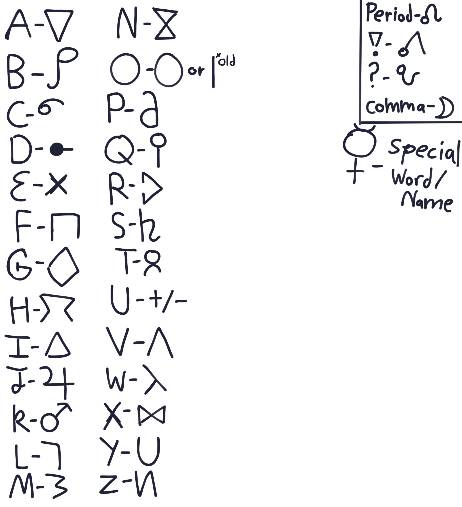 A-▽
B-
C-
D-
E-×
F-
G-◇
H-
I-△
J-♃
K-♂
L-
M-3
N-
O-O or | *old
P-
Q-⚲
R-▷
S-
T-
U-+/-
V-Λ
W-λ
X-⋈
Y-U
Z-И
Period-
!-
?-
comma-☽
- special
Word/
Name